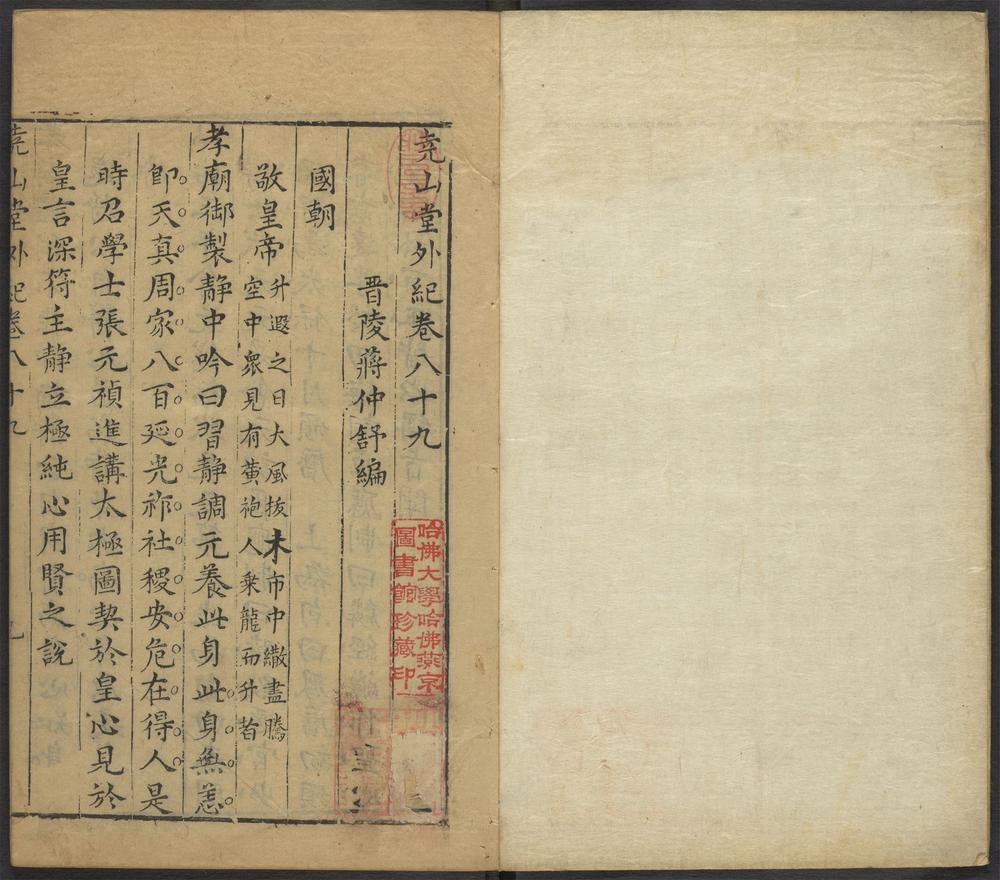 堯山堂外紀卷八十九
晋陵蔣仲舒編
國朝
敬皇帝升遐之日大風拔木市中繖盡騰
空中衆見有黄袍人乗龍而升者
孝廟御製静中吟曰習静調元養此身此身無恙
即天真周家八百延光祚社稷安危在得人是
時召學士張元禎進講太極圖契於皇心見於
皇言深符主静立極純心用賢之說
堯山堂外紀卷八十九
哈佛大學哈佛燕京
圖書館珍藏印